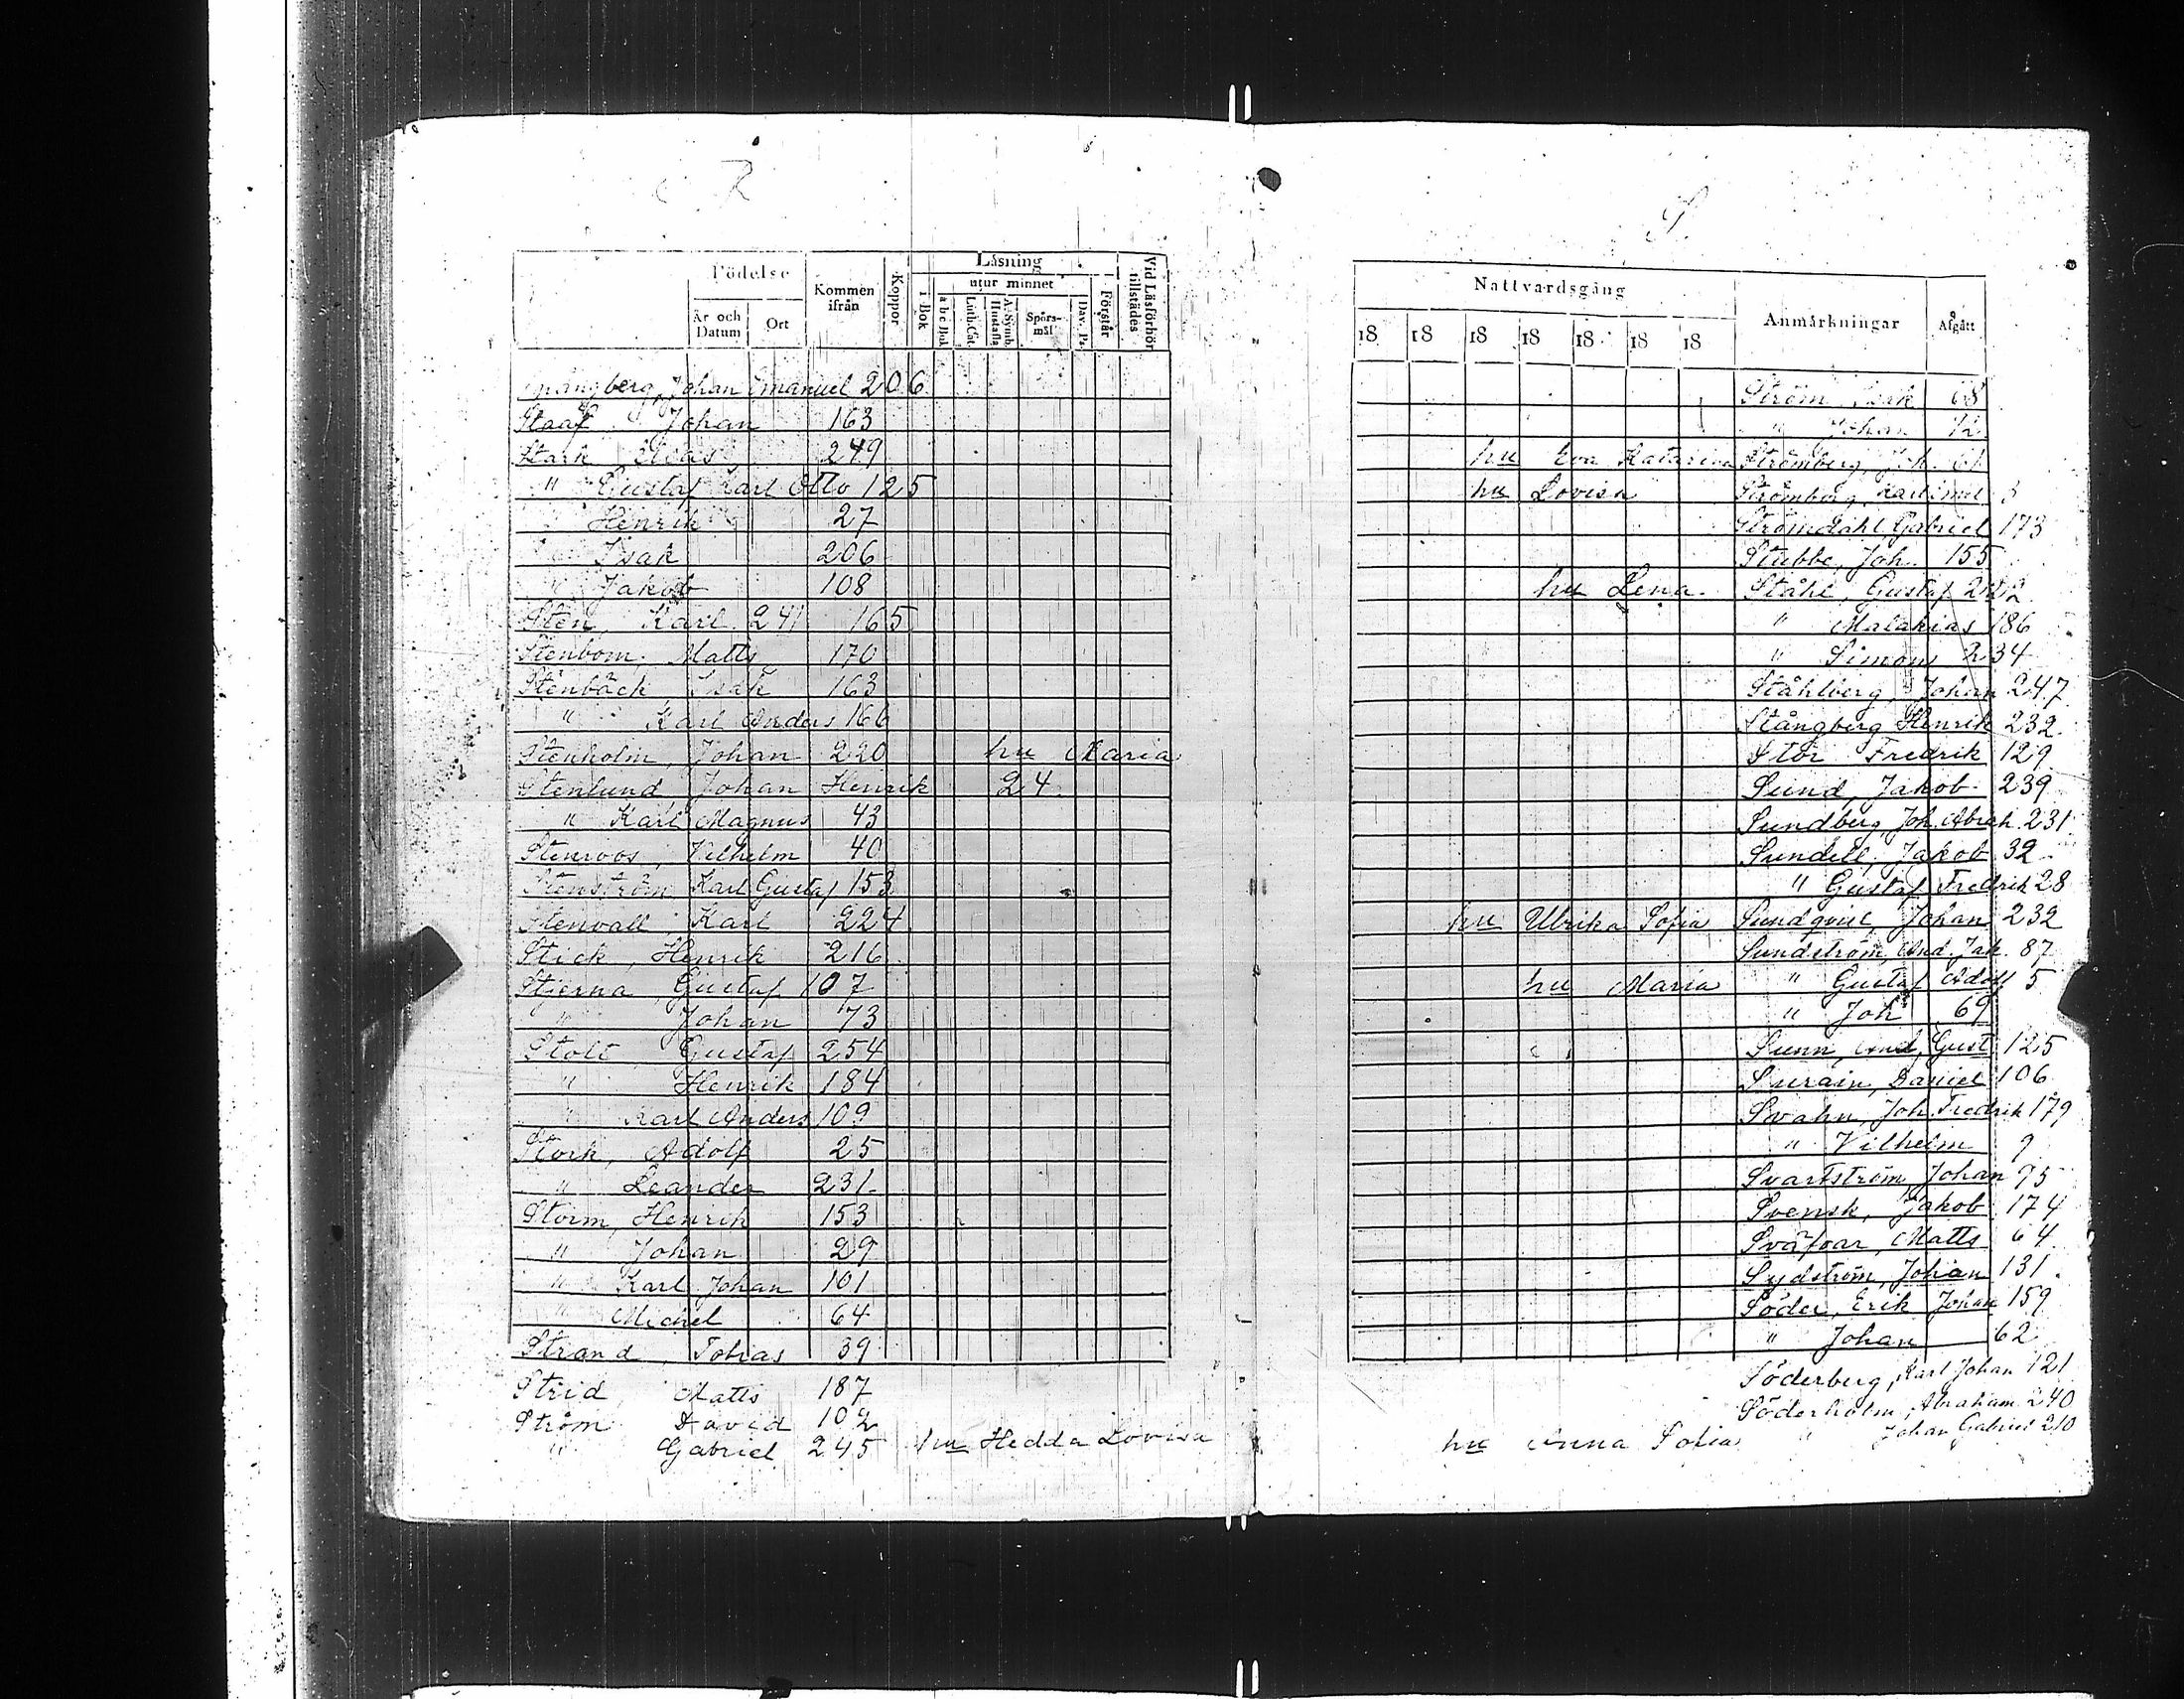 Födelse
År och Datum
Ort
Kommen ifrån
Koppor
Läsning
utur minnet
i Bok
a b c Bok
Luth. Cat.
A. Symb. Hustafla
Spörs-mål
Dav. Ps.
Förstår
Vid Läsförhör tillstädes
Johan Emanuel 206
Staaf Johan 163
Stark 249
" Gustaf Karl Otto 125
" Henrik 27
" Isak 206
" Jakob 108
Sten, Karl 241 165
Stenbom Matts 170
Stenbäck Isak 163
" Karl Anders 166
Stenholm, Johan 220 hu Maria
Stenlund Johan Henrik 24
" Karl Magnus 43
Stenroos, Vilhelm 40
Stenström Karl Gustaf 153
Stenvall, Karl 224
Stick, Henrik 216
Stjerna, Gustaf 107
" Johan 73
Stolt Gustaf 254
" Henrik 184
" Karl Anders 109
Stork, Adolf 25
" Leander 231
Storm, Henrik 153
" Johan 29
" Karl Johan 101
" Michel 64
Strand, Tobias 39
Strid Matts 187
Ström David 102
" Gabriel 245 hu Hedda Lovisa
S.
Nattvardsgång
Anmärkningar
Afgått
18 18 18 18 18 18 18
Ström, Isak 68
" Johan 72
hu Eva Katarina Strömberg, Joh. 61
hu Lovisa Strömberg, Karl
Strömdahl, Gabriel 173
Stubbe, Joh. 155
hu Lena Ståhl, Gustaf 222
" Malakias 186
" Simon 234
Ståhlberg, Johan 247
Stångberg Henrik 232
Stör Fredrik 129
Sund, Jakob 239
Sundberg, Joh. Abrah. 231
Sundell, Jakob 32
" Gustaf Fredrik 28
hu Ulrika Sofia Sundqvist, Johan 232
Sundström, And. Jak. 87
hu Maria " Gustaf Adolf 5
" Joh 69
Sunn, And. Gust 125
Surain, Daniel 106
Svahn, Joh. Fredrik 179
" Vilhelm 9
Svartström, Johan 95
Svensk, Jakob 174
Sväfvar, Matts 64
Sydström, Johan 131
Söder, Erik Johan 159
" Johan 62
Söderberg, Karl Johan 121
Söderholm, Abraham 240
hu Anna Sofia " Johan Gabriel 210